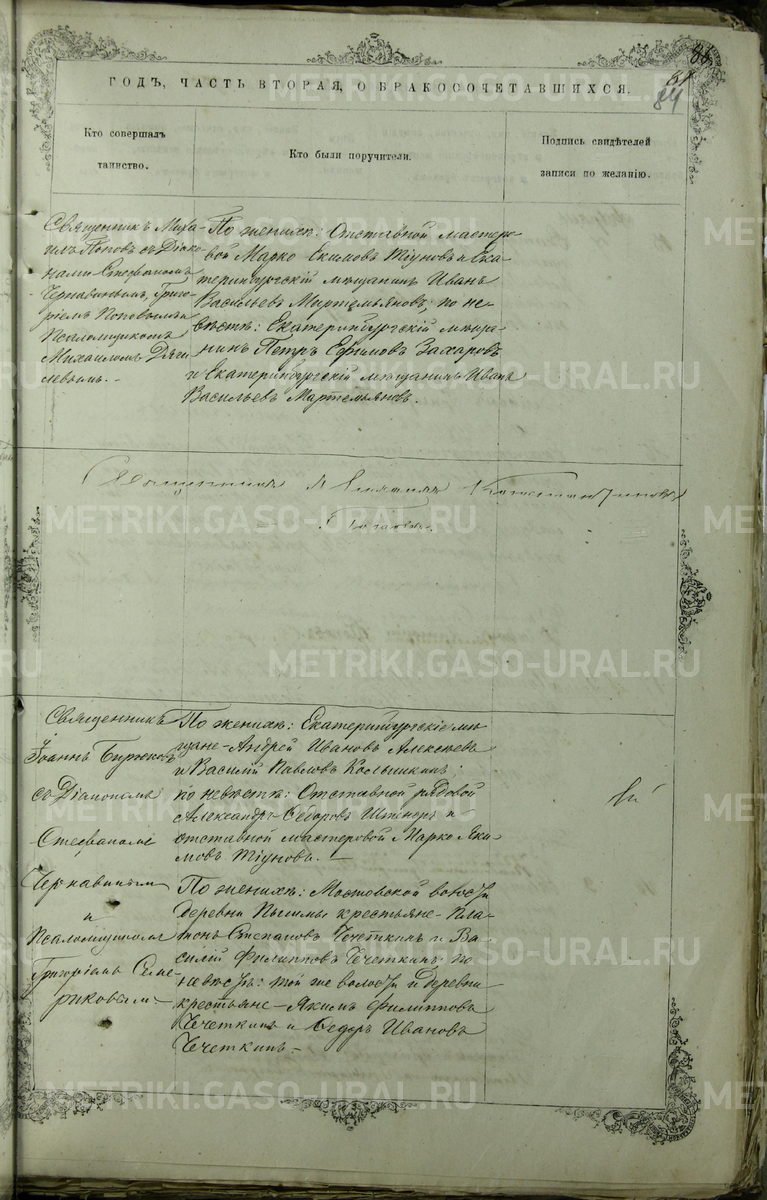 86
84
ГОДЪ, ЧАСТЬ ВТОРАЯ, О БРАКОСОЧЕТАВШИХСЯ.
Кто совершалъ
таинство.
Кто были поручители.
Подпись свидѣтелей
записи по желанію.
Священникъ Миха-
илъ Поповъ съ Діако-
нами Стефаномъ
Чернавинымъ, Григо-
ріемъ Поповымъ и
Псаломщикомъ
Михаиломъ
По женихѣ: Отставной мастеро-
вой Марко Екимовъ Тіуновъ и Ека-
теринбургскій мѣщанинъ Иванъ
Васильевъ Мартемьяновъ; по не-
вѣстѣ: Екатеринбургскій мѣща-
нинъ Петръ Ефимовъ Захаровъ
и Екатеринбургскій мѣщанинъ Иванъ
Васильевъ Мартемьяновъ.
Священникъ
Священникъ
Іоаннъ Бирюковъ
съ Діакономъ
Стефаномъ
Чернавинымъ
и
Псаломщикомъ
Григоріемъ Семе-
риковымъ
По женихѣ: Екатеринбургскіе мѣ-
щане Андрей Ивановъ Алексѣевъ
и Василій Павловъ
по невѣстѣ: Отставной рядовой
Александръ Ѳедоровъ и
отставной мастеровой Марко Яки-
мовъ Тіуновъ.
По женихѣ: Мостовской волости
деревни Пышмы крестьяне Пла-
тонъ Степановъ Чечеткинъ и Ва-
силій Филипповъ Чечеткинъ; по
невѣстѣ: той же волости и деревни
крестьяне Якимъ Филипповъ
Чечеткинъ и Ѳедоръ Ивановъ
Чечеткинъ
METRIKI.GASO-URAL.RU